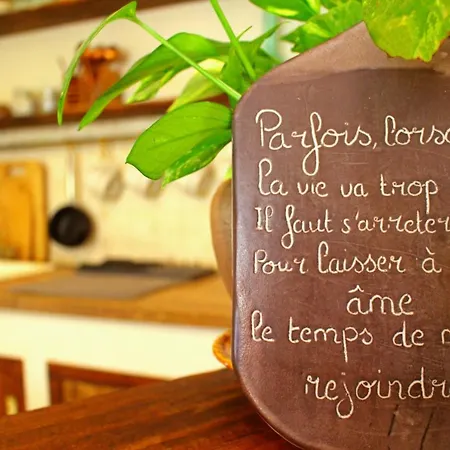 Parfois, lors
la vie va trop
Il faut s'arreter
Pour laisser à
âme
le temps de
rejoindr